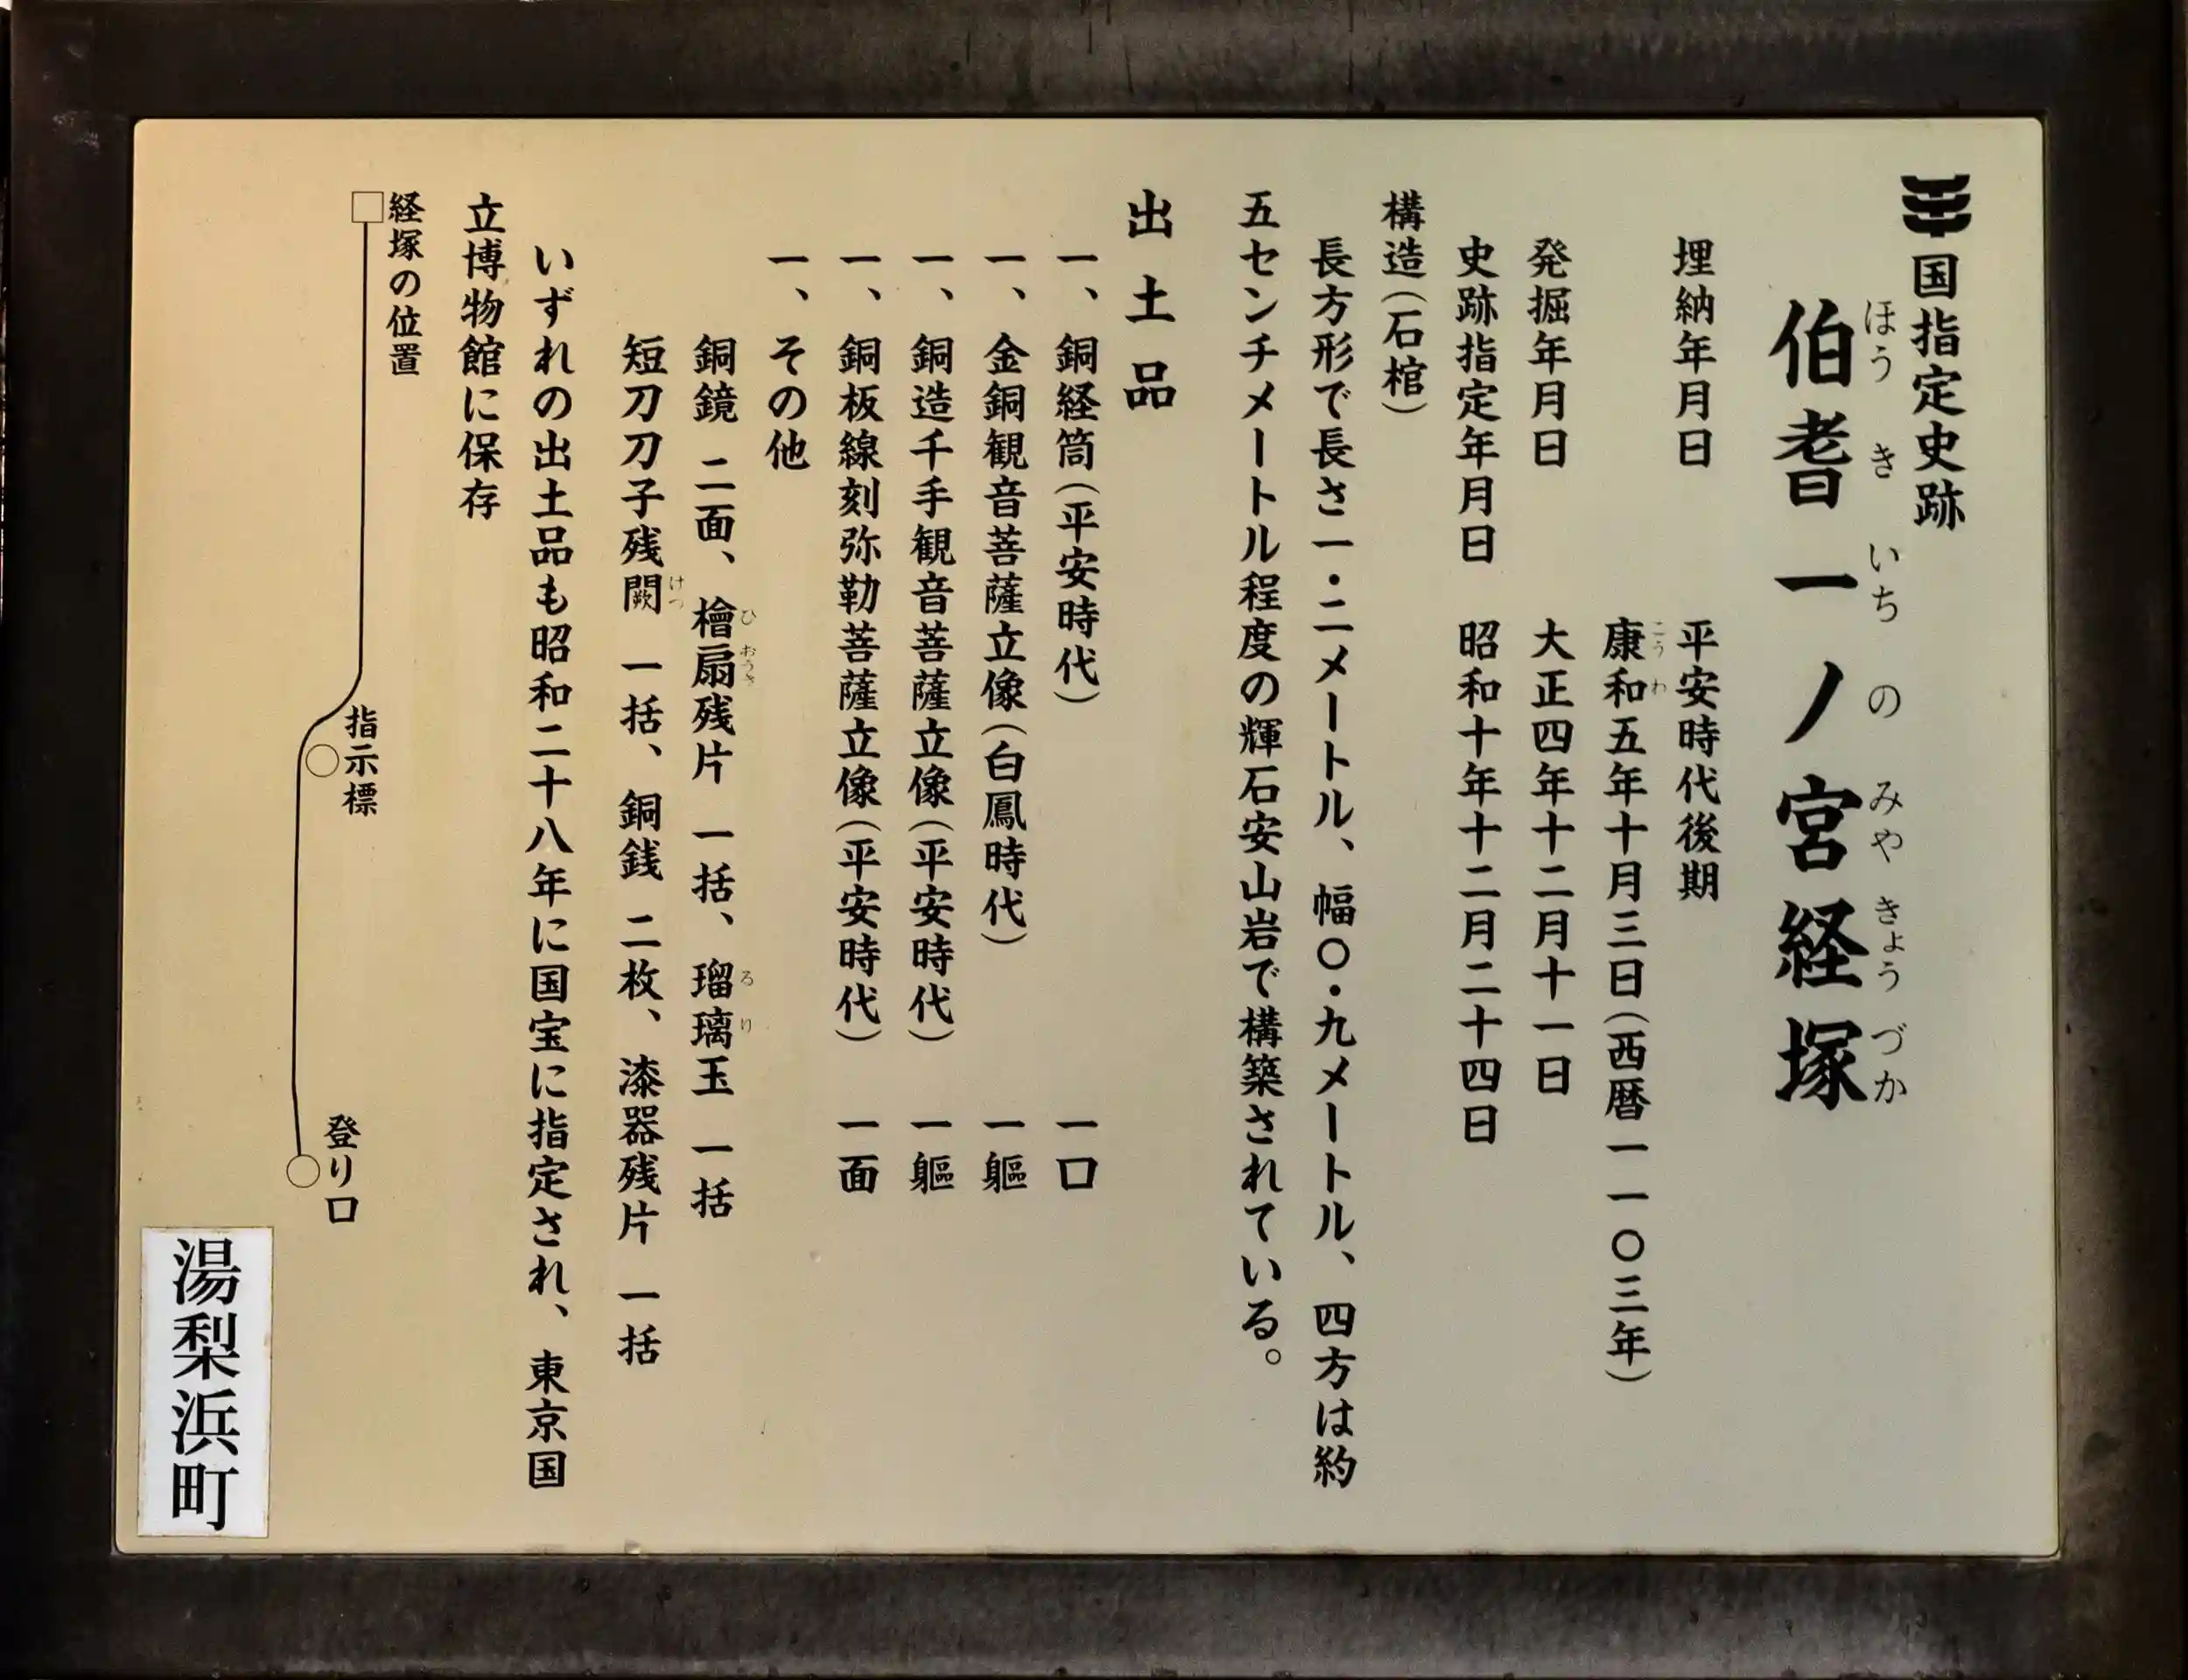 国指定史跡
伯耆一ノ宮経塚
ほうきいちのみやきょうづか
埋納年月日　平安時代後期
康和五年十月三日(西暦一一〇三年)
こうわ
発掘年月日　大正四年十二月十一日
史跡指定年月日　昭和十年十二月二十四日
構造(石棺)
長方形で長さ一・二メートル、幅〇・九メートル、四方は約
五センチメートル程度の輝石安山岩で構築されている。
出土品
一、銅経筒(平安時代)　一口
一、金銅観音菩薩立像(白鳳時代)　一軀
一、銅造千手観音菩薩立像(平安時代)　一軀
一、銅板線刻弥勒菩薩立像(平安時代)　一面
一、その他
銅鏡 二面、檜扇残片 一括、瑠璃玉 一括
ひおうぎ るり
短刀刀子残闕 一括、銅銭 二枚、漆器残片 一括
けつ
いずれの出土品も昭和二十八年に国宝に指定され、東京国
立博物館に保存
経塚の位置
指示標
登り口
湯梨浜町